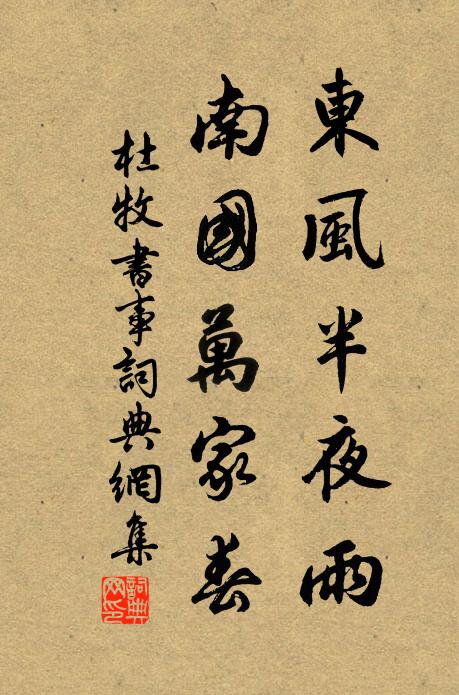 東風半夜雨
南國萬家春
杜牧書事詞典網集
詞典網印